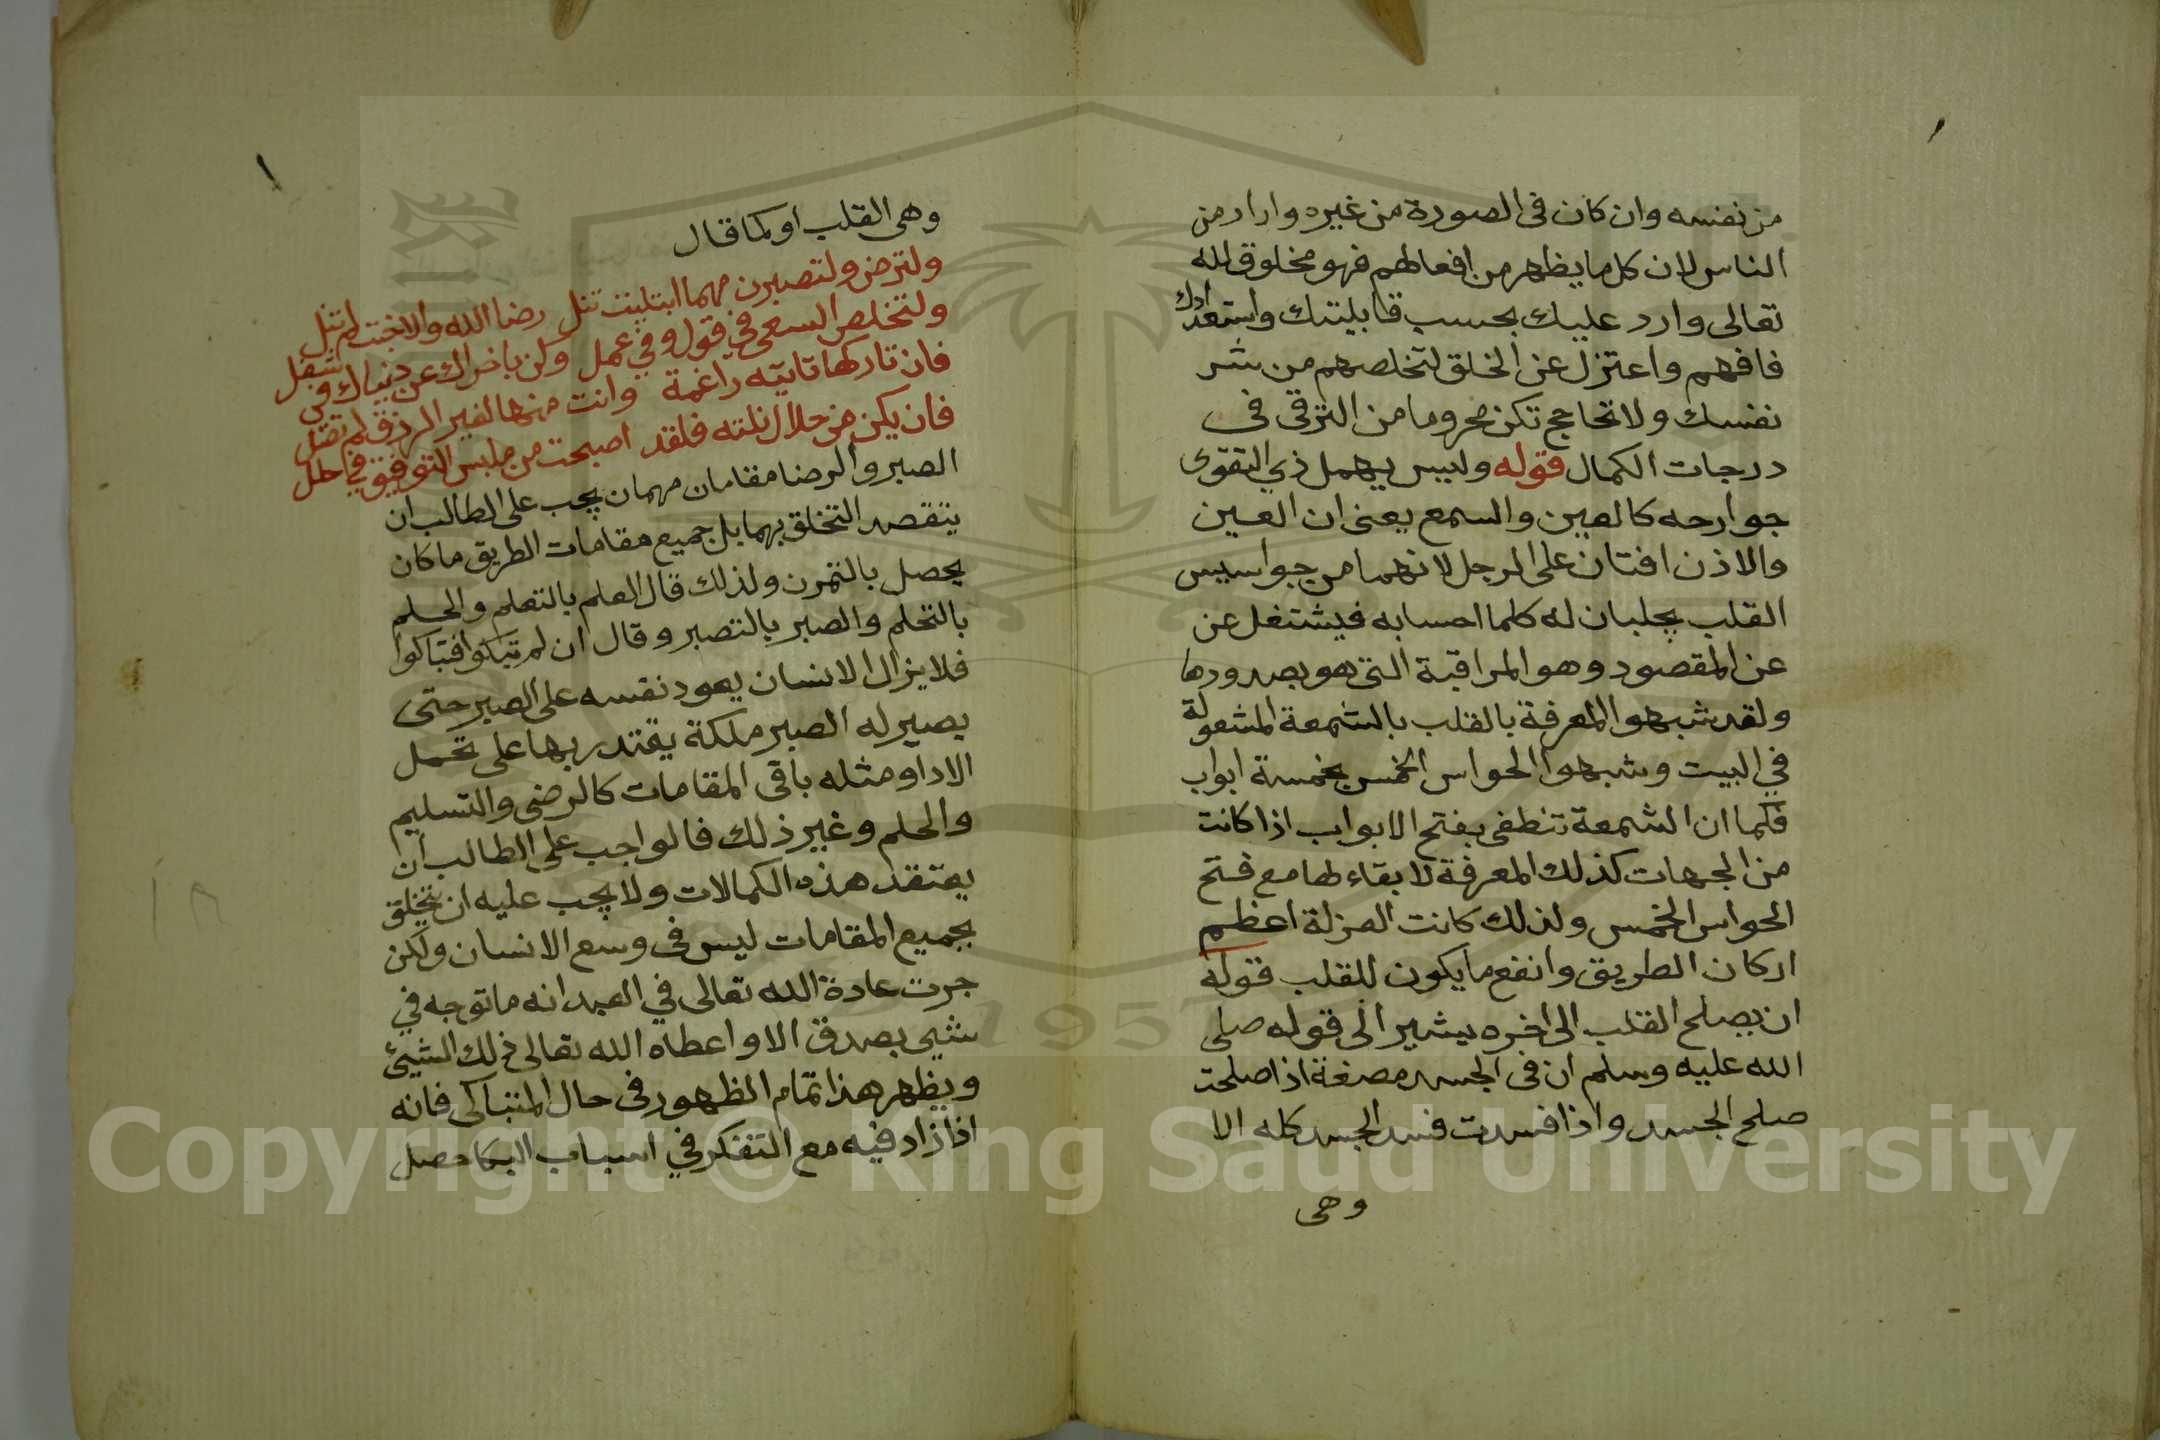 من نفسه وان كان فى الصورة من غيره وارار من
الناس لان كل ما يظهر من افعالهم فهو مخلوق لله
تعالى وارد عليك بحسب قابليتك واستعدادك
فافهم واعتزل عن الخلق لتخلصهم من شر
نفسك ولا تحاجج تكن محروما من الترقى فى
درجات الكمال قوله وليس يهمل ذي التقوى
جوارحه كالعين والسمع يعنى ان العين
والاذن افتان على الرجل لانهما من جواسيس
القلب يجلبان له كلما احسا به فيشتغل عن
عن المقصود وهو المراقبة التى هو بصدورها
ولقد شبهوا المعرفة بالقلب بالشمعة المشعولة
في البيت وشبهوا الحواس الخمس بخمسة ابواب
فكما ان الشمعة تنطفى بفتح الابواب اذا كانت
من الجهات كذلك المعرفة لا بقاء لها مع فتح
الحواس الخمس ولذلك كانت العزلة اعظم
اركان الطريق وانفع ما يكون للقلب قوله
ان يصلح القلب الى اخره يشير الى قوله صلى
الله عليه وسلم ان فى الجسد مضغة اذا صلحت
صلح الجسد واذا فسدت فسد الجسد كله الا
وهى
وهى القلب او كما قال
ولترض ولتصبرن مهما ابتليت تنل رضا الله والاخت لم تنل
ولتخلص السعى في قول وفي عمل ولن باخراك عن دنياك في شغل
فان تاركها تاتيه راغمة وانت منها لغير الرزق لم تصل
فان يكن من حلال نلته فلقد اصبحت من ملبس التوفيق في حلل
الصبر والرضا مقامان مهمان يجب على الطالب ان
يتقصد التخلق بهما بل جميع مقامات الطريق ما كان
يحصل بالتمرن ولذلك قال العلم بالتعلم والحلم
بالتحلم والصبر بالتصبر وقال ان لم تبكوا فتباكوا
فلا يزال الانسان يعود نفسه على الصبر حتى
يصير له الصبر ملكة يقتدر بها على تحمل
الاداو مثله باقى المقامات كالرضى والتسليم
والحلم وغير ذلك فالواجب على الطالب ان
يعتقد هذه الكمالات ولا يجب عليه ان يتخلق
بجميع المقامات ليس فى وسع الانسان ولكن
جرت عادة الله تعالى في العبد انه ما توجه في
شيى بصدق الا واعطاه الله تعالى ذلك الشيئ
ويظهر هذا تمام الظهور فى حال المتباكى فانه
اذا زاد فيه مع التفكر في اسباب البكا حصل
١٨
1957
Copyright © King Saud University